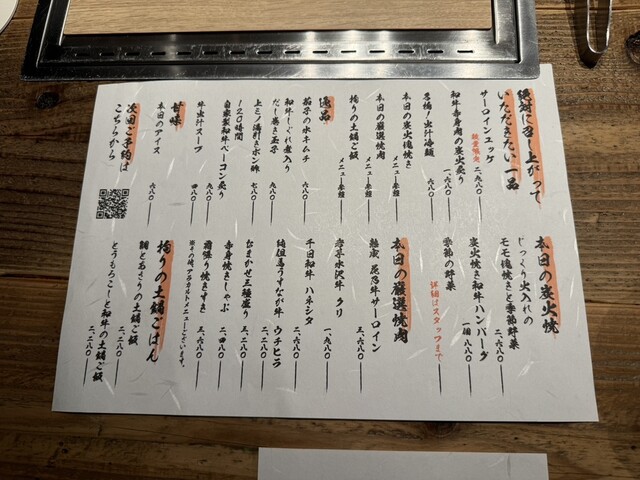 絶対に召し上がって
いただきたい一品
サーロインユッケ 数量限定 二、九八〇
和牛赤身肉の炭火炙り 一、六八〇
名物！出汁冷麺 六八〇
本日の炭火塊焼き メニュー参照
本日の厳選焼肉 メニュー参照
拘りの土鍋ご飯 メニュー参照
逸品
茄子の水キムチ 六八〇
和牛しぐれ煮入り
だし巻き玉子 九八〇
上ミノ湯引きポン酢 七八〇
120時間
自家製和牛ベーコン炙り 九八〇
牛出汁スープ 四八〇
甘味
本日のアイス 六八〇
次回ご予約は
こちらから
本日の炭火焼
じっくり火入れの
モモ塊焼きと季節野菜 二、六八〇
炭火焼き和牛ハンバーグ 一個 八八〇
季節の野菜 詳細はスタッフまで
本日の厳選焼肉
サーロイン 三、六八〇
クリ 一、九八〇
千日和牛 ハネシタ 二、六八〇
ウチヒラ 二、二八〇
おまかせ三種盛り 三、二八〇
赤身焼きしゃぶ 二、四八〇
霜降り焼きすき 三、六八〇
※その他、アラカルトメニューございます。
拘りの土鍋ごはん
鯛とあさりの土鍋ご飯 二、二八〇
とうもろこしと和牛の土鍋ご飯 二、二八〇